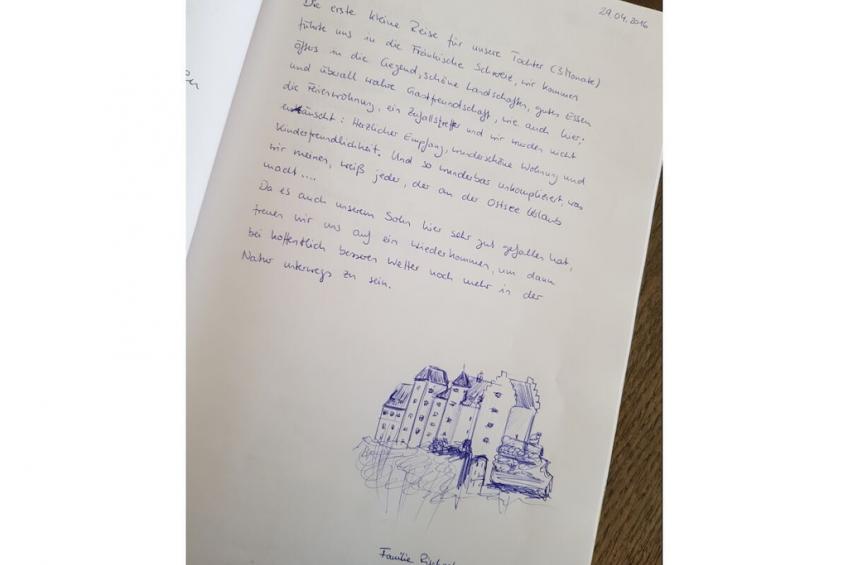 29.04.2016
Die erste kleine Reise für unsere Tochter (3 Monate)
führte uns in die Fränkische Schweiz, wir kommen
öfters in die Gegend, schöne Landschaften, gutes Essen
und überall wahre Gastfreundschaft, wie auch hier;
die Ferienwohnung, ein Zufallstreffer und wir wurden nicht
enttäuscht: Herzlicher Empfang, wunderschöne Wohnung und
Kinderfreundlichkeit. Und so wunderbar unkompliziert, was
wir meinen, weiß jeder, der an der Ostsee Urlaub
macht....
Da es auch unserem Sohn hier sehr gut gefallen hat,
freuen wir uns auf ein Wiederkommen, um dann
bei hoffentlich besseren Wetter noch mehr in der
Natur unterwegs zu sein.
Familie